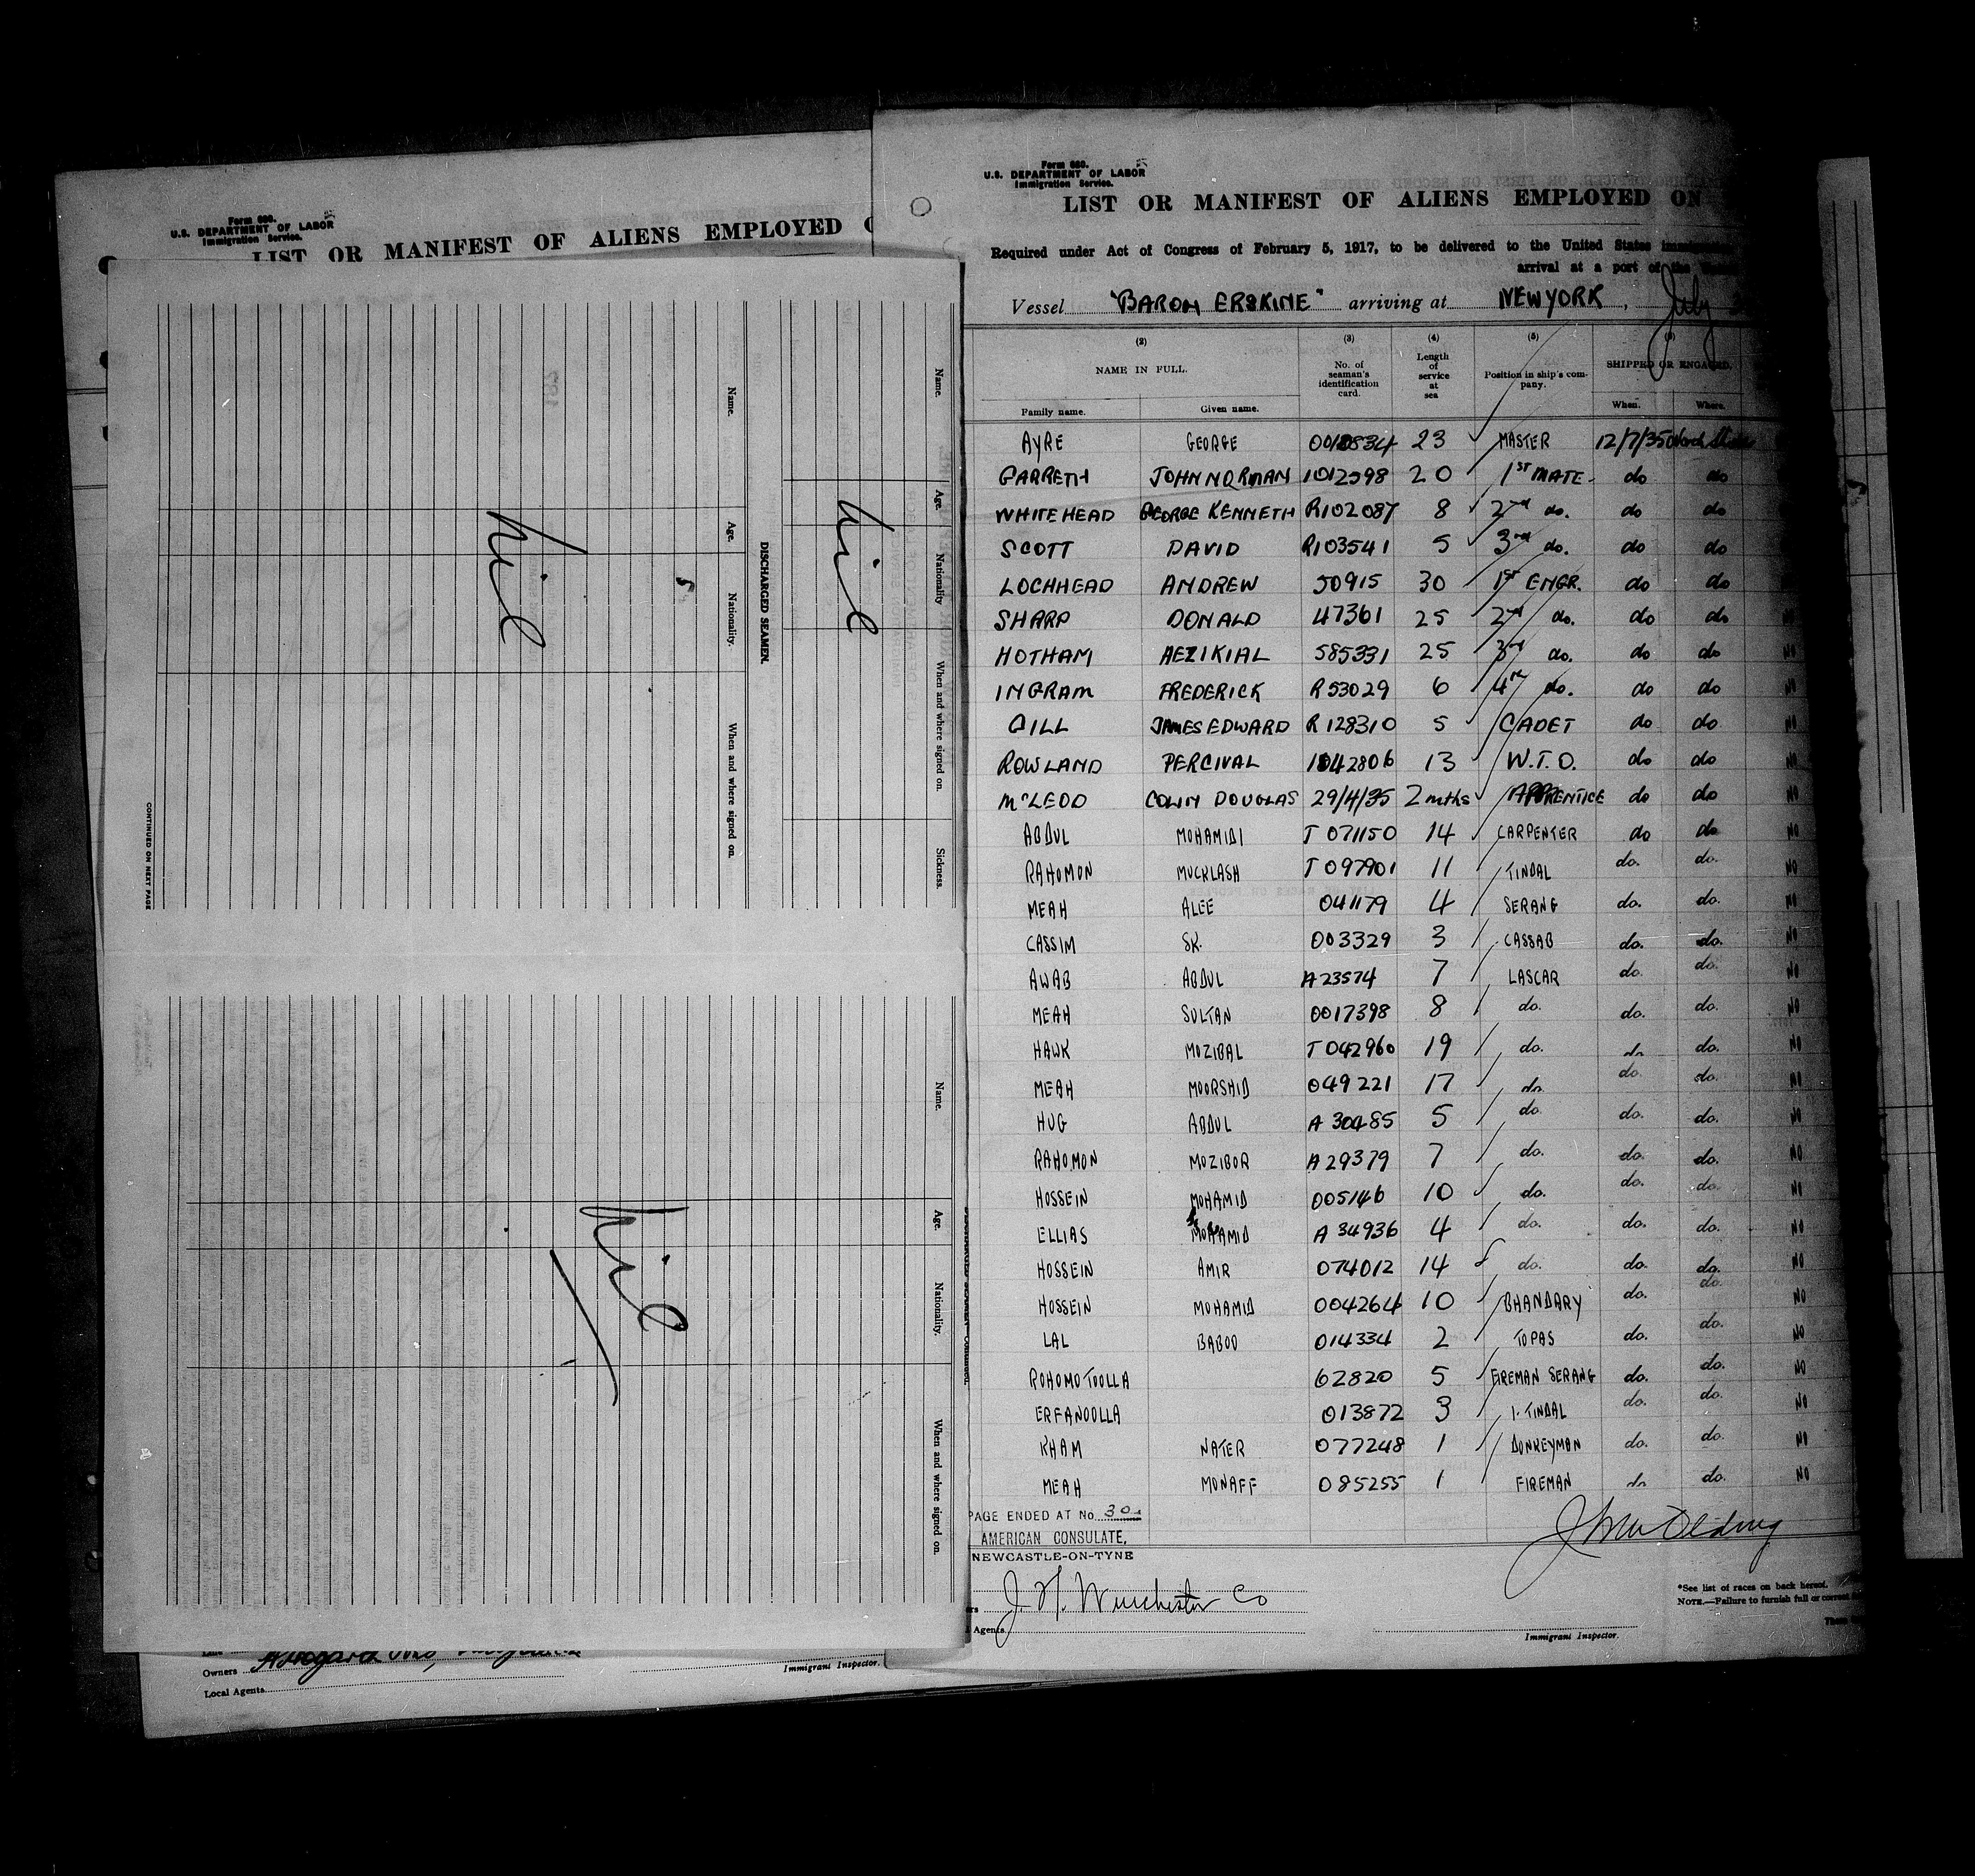 Form 680.
U.S. DEPARTMENT OF LABOR
Immigration Service.
LIST OR MANIFEST OF ALIENS EMPLOYED
Name. Age. Nationality When and where signed on. Sickness.
Nil
DISCHARGED SEAMEN.
Name. Age. Nationality. When and where signed on.
Nil
CONTINUED ON NEXT PAGE
Name. Age. Nationality. When and where signed on.
Nil
Owners
Local Agents
Immigrant Inspector.
Form 680.
U.S. DEPARTMENT OF LABOR
Immigration Service.
LIST OR MANIFEST OF ALIENS EMPLOYED ON
Required under Act of Congress of February 5, 1917, to be delivered to the United States
arrival at a port of the
Vessel "BARON ERSKINE" arriving at NEW YORK, July
(2) (3) (4) (5) (6)
NAME IN FULL. No. of seaman's identification card. Length of service at sea Position in ship's company. SHIPPED OR ENGAGED.
Family name. Given name. When. Where.
AYRE GEORGE 23 MASTER 12/7/35
GARRETH JOHN NORMAN 1012598 20 1ST MATE do do
WHITEHEAD GEORGE KENNETH R102087 8 2nd do. do do
SCOTT DAVID R103541 5 3rd do. do do
LOCHHEAD ANDREW 50915 30 1st ENGR. do do
SHARP DONALD 47361 25 2nd do. do do
HOTHAM HEZIKIAL 585331 25 3rd do. do do NO
INGRAM FREDERICK R53029 6 4th do. do do NO
GILL JAMES EDWARD R128310 5 CADET do do NO
ROWLAND PERCIVAL 1042806 13 W.T.O. do do NO
McLEOD COLIN DOUGLAS 29/4/35 2 mths APPRENTICE do do NO
ABDUL MOHAMIDI T 071150 14 CARPENTER do do NO
RAHOMON MUCKLASH T 097901 11 TINDAL do. do. NO
MEAH ALEE 041179 4 SERANG do. do. NO
CASSIM SK. 003329 3 CASSAB do. do. NO
AWAB ABDUL A 23574 7 LASCAR do. do. NO
MEAH SULTAN 0017398 8 do. do. do. NO
HAWK MOZIBAL T 042960 19 do. do. do. NO
MEAH MOORSHID 049221 17 do. do. do. NO
HUG ABDUL A 30485 5 do. do. do. NO
RAHOMON MOZIBOR A 29379 7 do. do. do. NO
HOSSEIN MOHAMID 005146 10 do. do. do. NO
ELLIAS MOHAMID A 34936 4 do. do. do. NO
HOSSEIN AMIR 074012 14 do. do. do. NO
HOSSEIN MOHAMID 004264 10 BHANDARY do. do. NO
LAL BABOO 014334 2 TOPAS do. do. NO
ROHOMOTOOLLA 62820 5 FIREMAN SERANG do. do. NO
ERFANOOLLA 013872 3 1. TINDAL do. do. NO
KHAM NATER 077248 1 DONKEYMAN do. do. NO
MEAH MONAFF 085255 1 FIREMAN do. do. NO
PAGE ENDED AT No. 30
AMERICAN CONSULATE,
NEWCASTLE-ON-TYNE
J. H. Winchester Co
Agents
Immigrant Inspector.
*See list of races on back hereof.
NOTE.—Failure to furnish full or correct